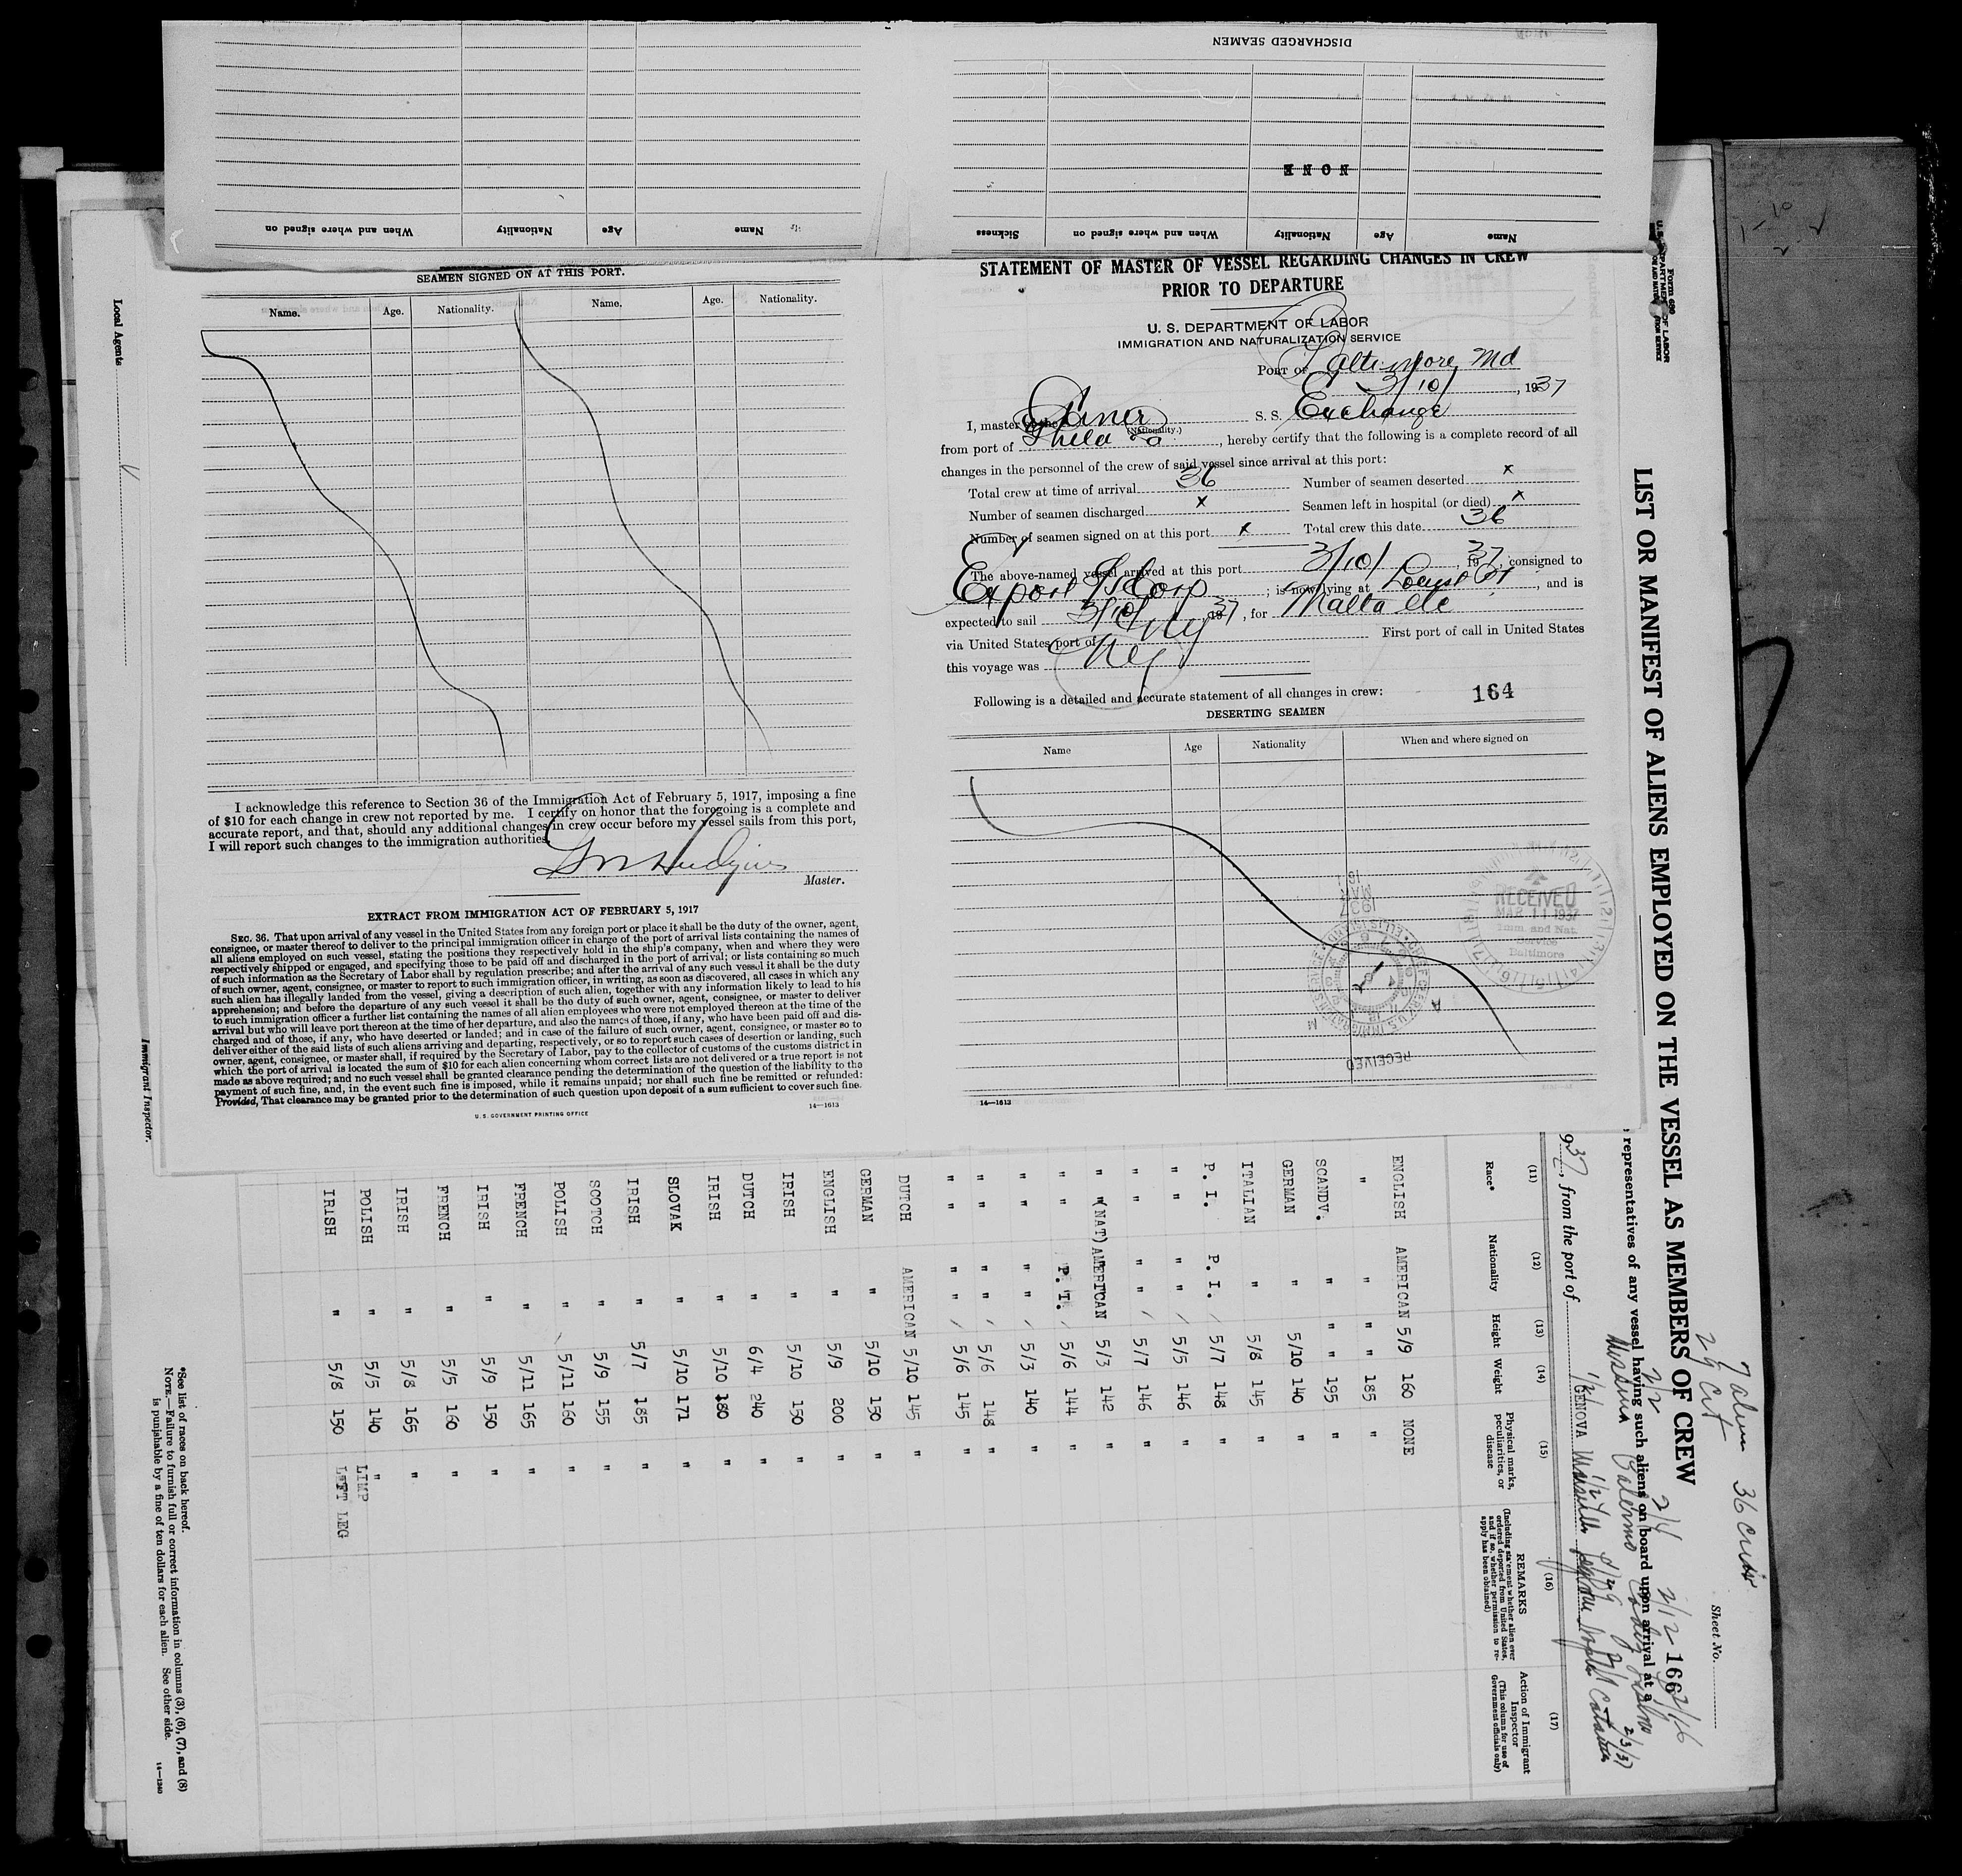 DISCHARGED SEAMEN
Name Age Nationality When and where signed on Sickness
NONE
Name Age Nationality When and where signed on
SEAMEN SIGNED ON AT THIS PORT.
Name. Age. Nationality. Name. Age. Nationality.
I acknowledge this reference to Section 36 of the Immigration Act of February 5, 1917, imposing a fine
of $10 for each change in crew not reported by me. I certify on honor that the foregoing is a complete and
accurate report, and that, should any additional changes in crew occur before my vessel sails from this port,
I will report such changes to the immigration authorities.
Master.
EXTRACT FROM IMMIGRATION ACT OF FEBRUARY 5, 1917
SEC. 36. That upon arrival of any vessel in the United States from any foreign port or place it shall be the duty of the owner, agent,
consignee, or master thereof to deliver to the principal immigration officer in charge of the port of arrival lists containing the names of
all aliens employed on such vessel, stating the positions they respectively hold in the ship's company, when and where they were
respectively shipped or engaged, and specifying those to be paid off and discharged in the port of arrival; or lists containing so much
of such information as the Secretary of Labor shall by regulation prescribe; and after the arrival of any such vessel it shall be the duty
of such owner, agent, consignee, or master to report to such immigration officer, in writing, as soon as discovered, all cases in which any
such alien has illegally landed from the vessel, giving a description of such alien, together with any information likely to lead to his
apprehension; and before the departure of any such vessel it shall be the duty of such owner, agent, consignee, or master to deliver
to such immigration officer a further list containing the names of all alien employees who were not employed thereon at the time of the
arrival but who will leave port thereon at the time of her departure, and also the names of those, if any, who have been paid off and dis-
charged and of those, if any, who have deserted or landed; and in case of the failure of such owner, agent, consignee, or master so to
deliver either of the said lists of such aliens arriving and departing, respectively, or so to report such cases of desertion or landing, such
owner, agent, consignee, or master shall, if required by the Secretary of Labor, pay to the collector of customs of the customs district in
which the port of arrival is located the sum of $10 for each alien concerning whom correct lists are not delivered or a true report is not
made as above required; and no such vessel shall be granted clearance pending the determination of the question of the liability to the
payment of such fine, and, in the event such fine is imposed, while it remains unpaid; nor shall such fine be remitted or refunded:
Provided, That clearance may be granted prior to the determination of such question upon deposit of a sum sufficient to cover such fine.
U. S. GOVERNMENT PRINTING OFFICE
14—1613
STATEMENT OF MASTER OF VESSEL REGARDING CHANGES IN CREW
PRIOR TO DEPARTURE
U. S. DEPARTMENT OF LABOR
IMMIGRATION AND NATURALIZATION SERVICE
PORT OF Baltimore, Md
3/10/, 1937
I, master of the Amer S. S. Exchange
(Nationality.)
from port of Phila Pa, hereby certify that the following is a complete record of all
changes in the personnel of the crew of said vessel since arrival at this port:
Total crew at time of arrival 36 Number of seamen deserted x
Number of seamen discharged x Seamen left in hospital (or died) x
Number of seamen signed on at this port x Total crew this date 36
The above-named vessel arrived at this port 3/10/, 1937, consigned to
Export SS Corp; is now lying at Locust Pt, and is
expected to sail 3/10/, 1937, for Malta etc
via United States port of NY First port of call in United States
this voyage was NY
Following is a detailed and accurate statement of all changes in crew:
164
DESERTING SEAMEN
Name Age Nationality When and where signed on
RECEIVED
MAR 11 1937
Imm. and Nat.
Service
Baltimore
1937
MAR
RECEIVED
14—1613
Local Agents
Immigrant Inspector.
LIST OR MANIFEST OF ALIENS EMPLOYED ON THE VESSEL AS MEMBERS OF CREW
Sheet No.
36 Crew
166
representatives of any vessel having such aliens on board upon arrival at a
, from the port of
(11) (12) (13) (14) (15) (16) (17)
Race* Nationality Height Weight Physical marks, peculiarities, or disease REMARKS (Including statement whether alien ever ordered deported from United States, and if so, whether permission to reapply has been obtained) Action of Immigrant Inspector (This column for use of Government officials only)
ENGLISH AMERICAN 5/9 160 NONE
" " " 185 "
SCANDV. " " 195 "
GERMAN " 5/10 140 "
ITALIAN " 5/8 145 "
P. I. P. I. 5/7 148 "
" " " " 5/5 146 "
" " " " 5/7 146 "
" " (NAT) AMERICAN 5/3 142 "
" " P. I. 5/6 144 "
" " " " 5/3 140 "
" " " " 5/6 148 "
" " " " 5/6 145 "
DUTCH AMERICAN 5/10 145 "
GERMAN " 5/10 150 "
ENGLISH " 5/9 200 "
IRISH " 5/10 150 "
DUTCH " 6/4 240 "
IRISH " 5/10 180 "
SLOVAK " 5/10 171 "
IRISH " 5/7 185 "
SCOTCH " 5/9 155 "
POLISH " 5/11 160 "
FRENCH " 5/11 165 "
IRISH " 5/9 150 "
FRENCH " 5/5 160 "
IRISH " 5/8 165 "
POLISH " 5/5 140 "
IRISH " 5/8 150 LIMP LEFT LEG
*See list of races on back hereof.
NOTE.—Failure to furnish full or correct information in columns (3), (6), (7), and (8)
is punishable by a fine of ten dollars for each alien. See other side.
14—1240